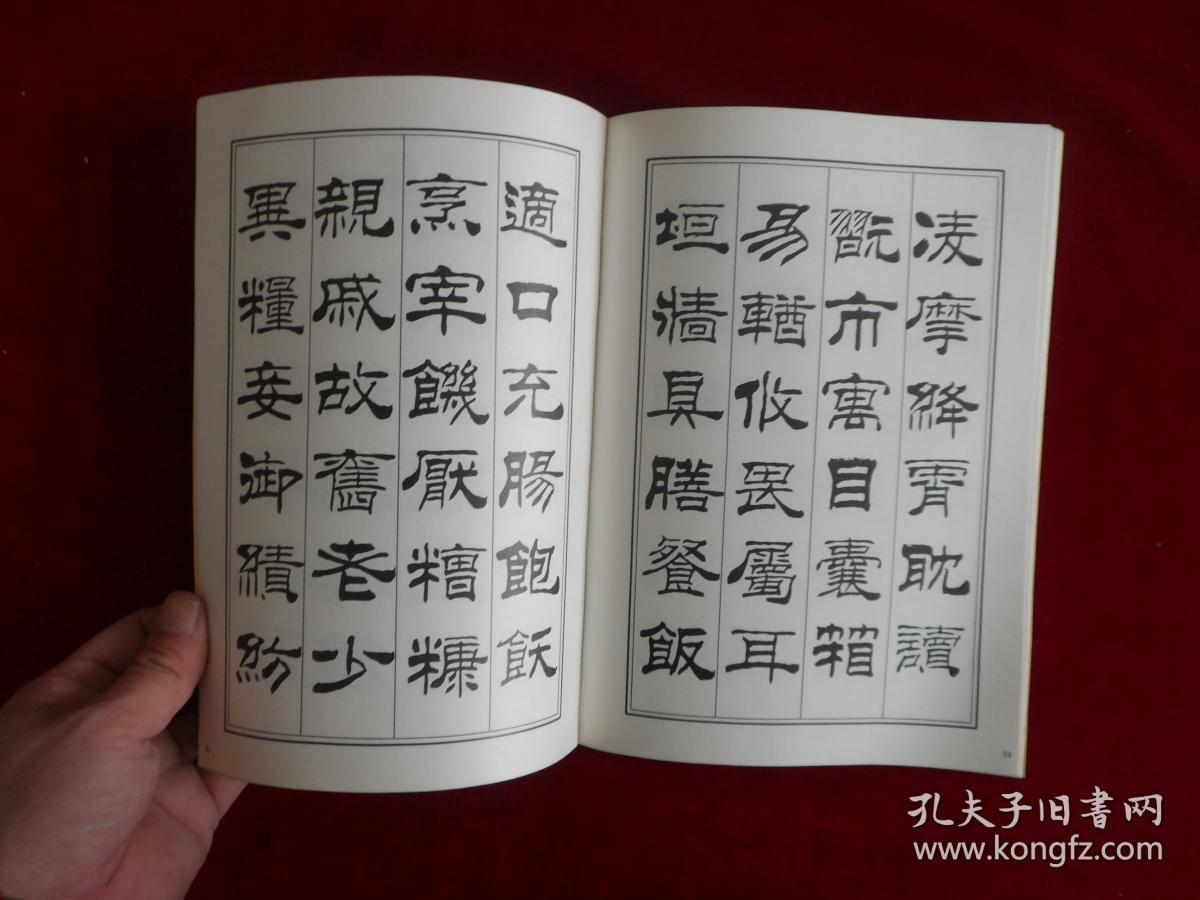 凌摩絳霄耽讀
翫市寓目囊箱
易輶攸畏屬耳
垣牆具膳餐飯
34
適口充腸飽飫
烹宰饑厭糟糠
親戚故舊老少
異糧妾御績紡
孔夫子旧書网
www.kongfz.com